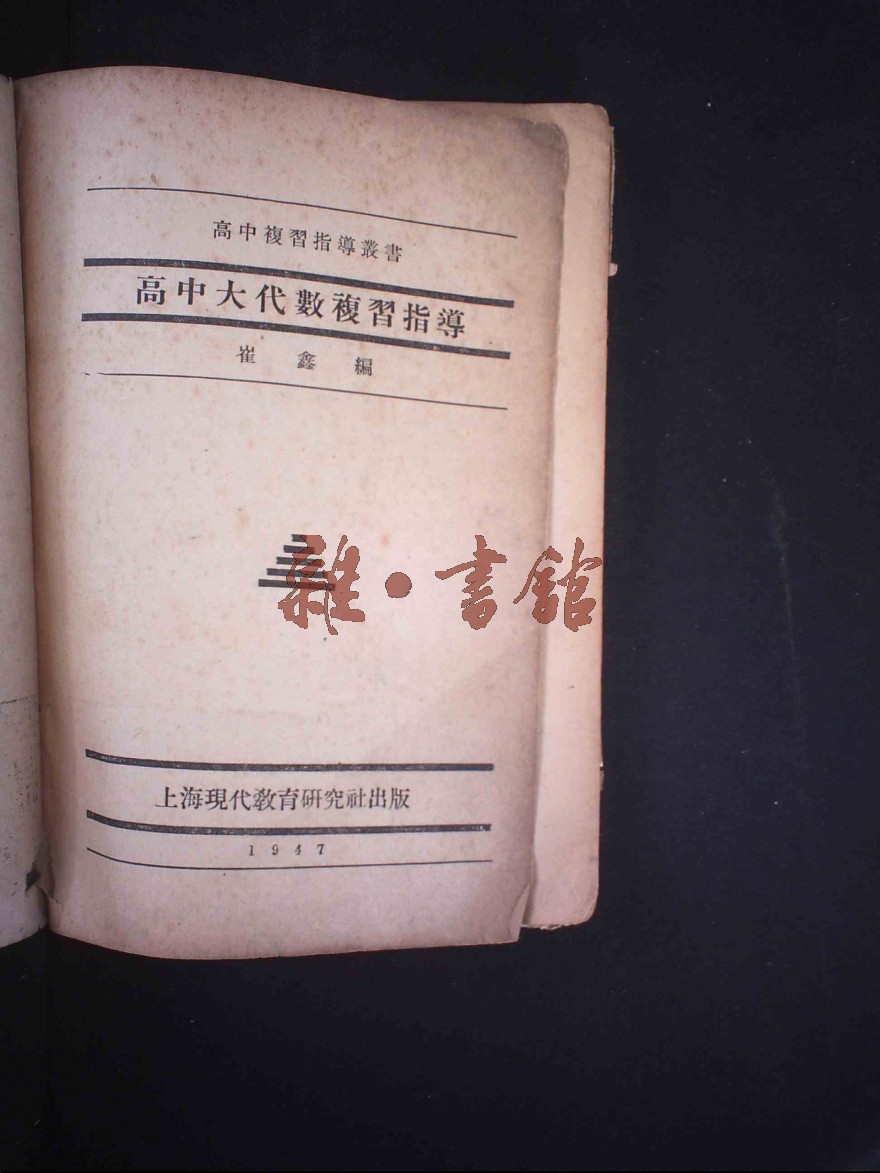 高中複習指導叢書
高中大代數複習指導
崔鑫編
雜·書館
上海現代教育研究社出版
1947